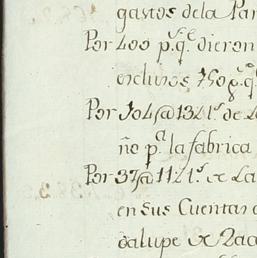 gastos dela Par
Por 400 p.s q.e dieron
inclusos 750 p.s q.
Por 104@134 l.s de
ño p.a la fabrica
Por 37@114 l.s de La
en sus Cuentas
dalupe de Zac